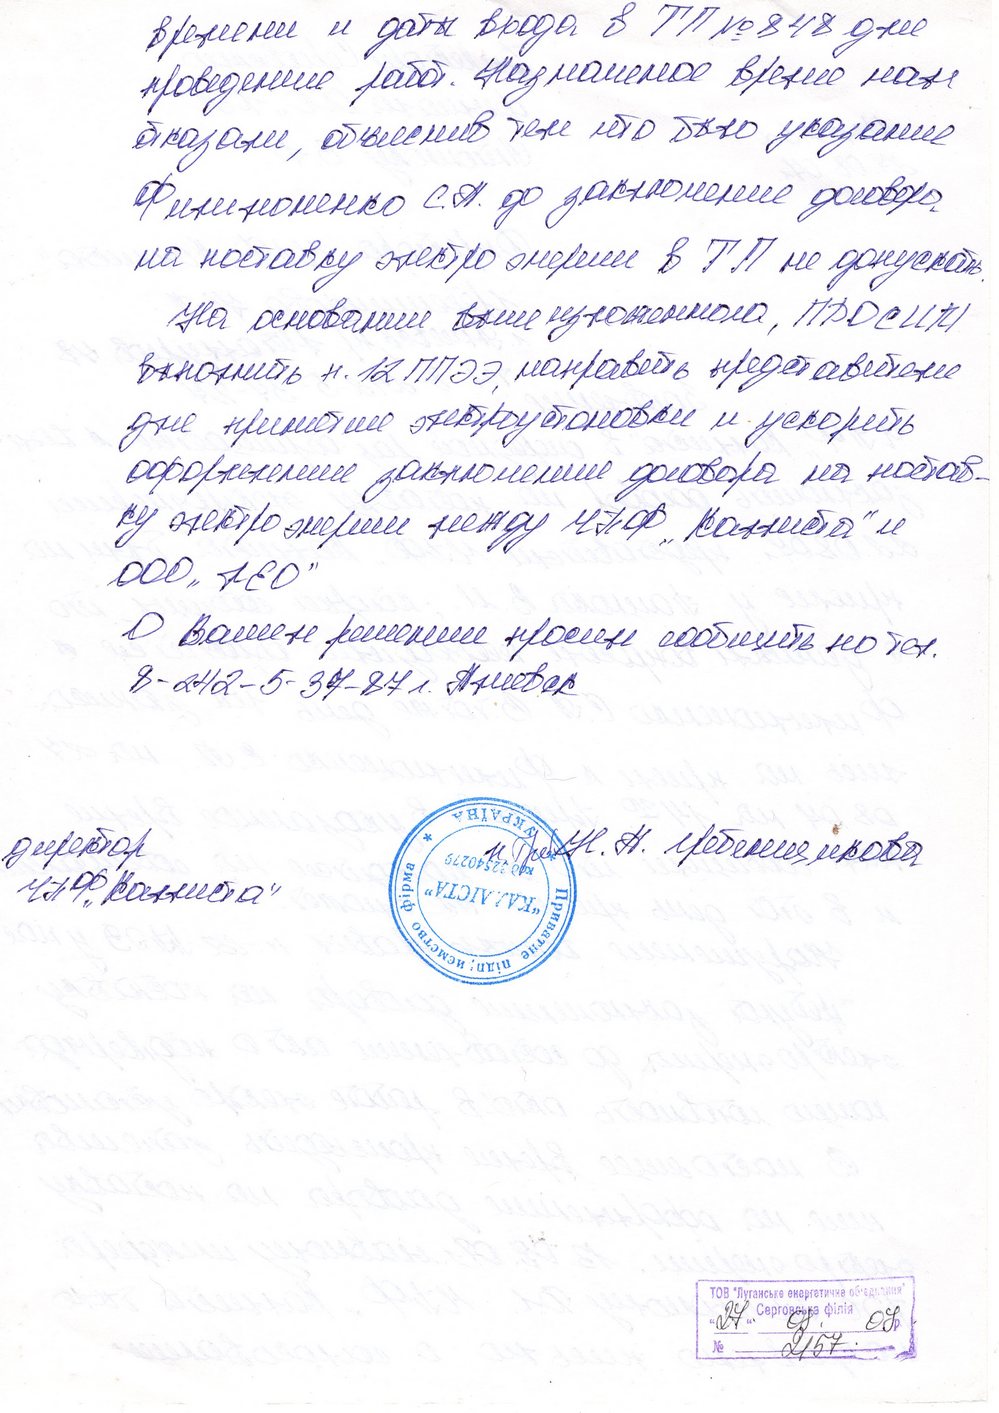 времени и даты входа в ТП №848 для
проведение работ. Назначеное время нам
отказали, объяснив тем что было указание
Филимоненко С.А. до заключение договора
на поставку электроэнергии в ТП не допускать.
На основании вышеизложенного, ПРОСИМ
выполнить п. 12 ППЭЭ, направить представителе
для принятие электроустановки и ускорить
оформление заключении договора на постав-
ку электроэнергии между ЧПФ „Каллиста" и
ООО „ЛЕО"
О Вашем решении просим сообщить по тел.
8-242-5-37-87 г. Алчевск
директор
ЧПФ „Каллиста"
Н.А. Гребенщикова
Приватне підприємство фірма
* УКРАЇНА *
"КАЛЛІСТА"
код 32540279
ТОВ "Луганське енергетичне об'єднання"
Серговська філія
"27" 08. 07р.
№ 2157